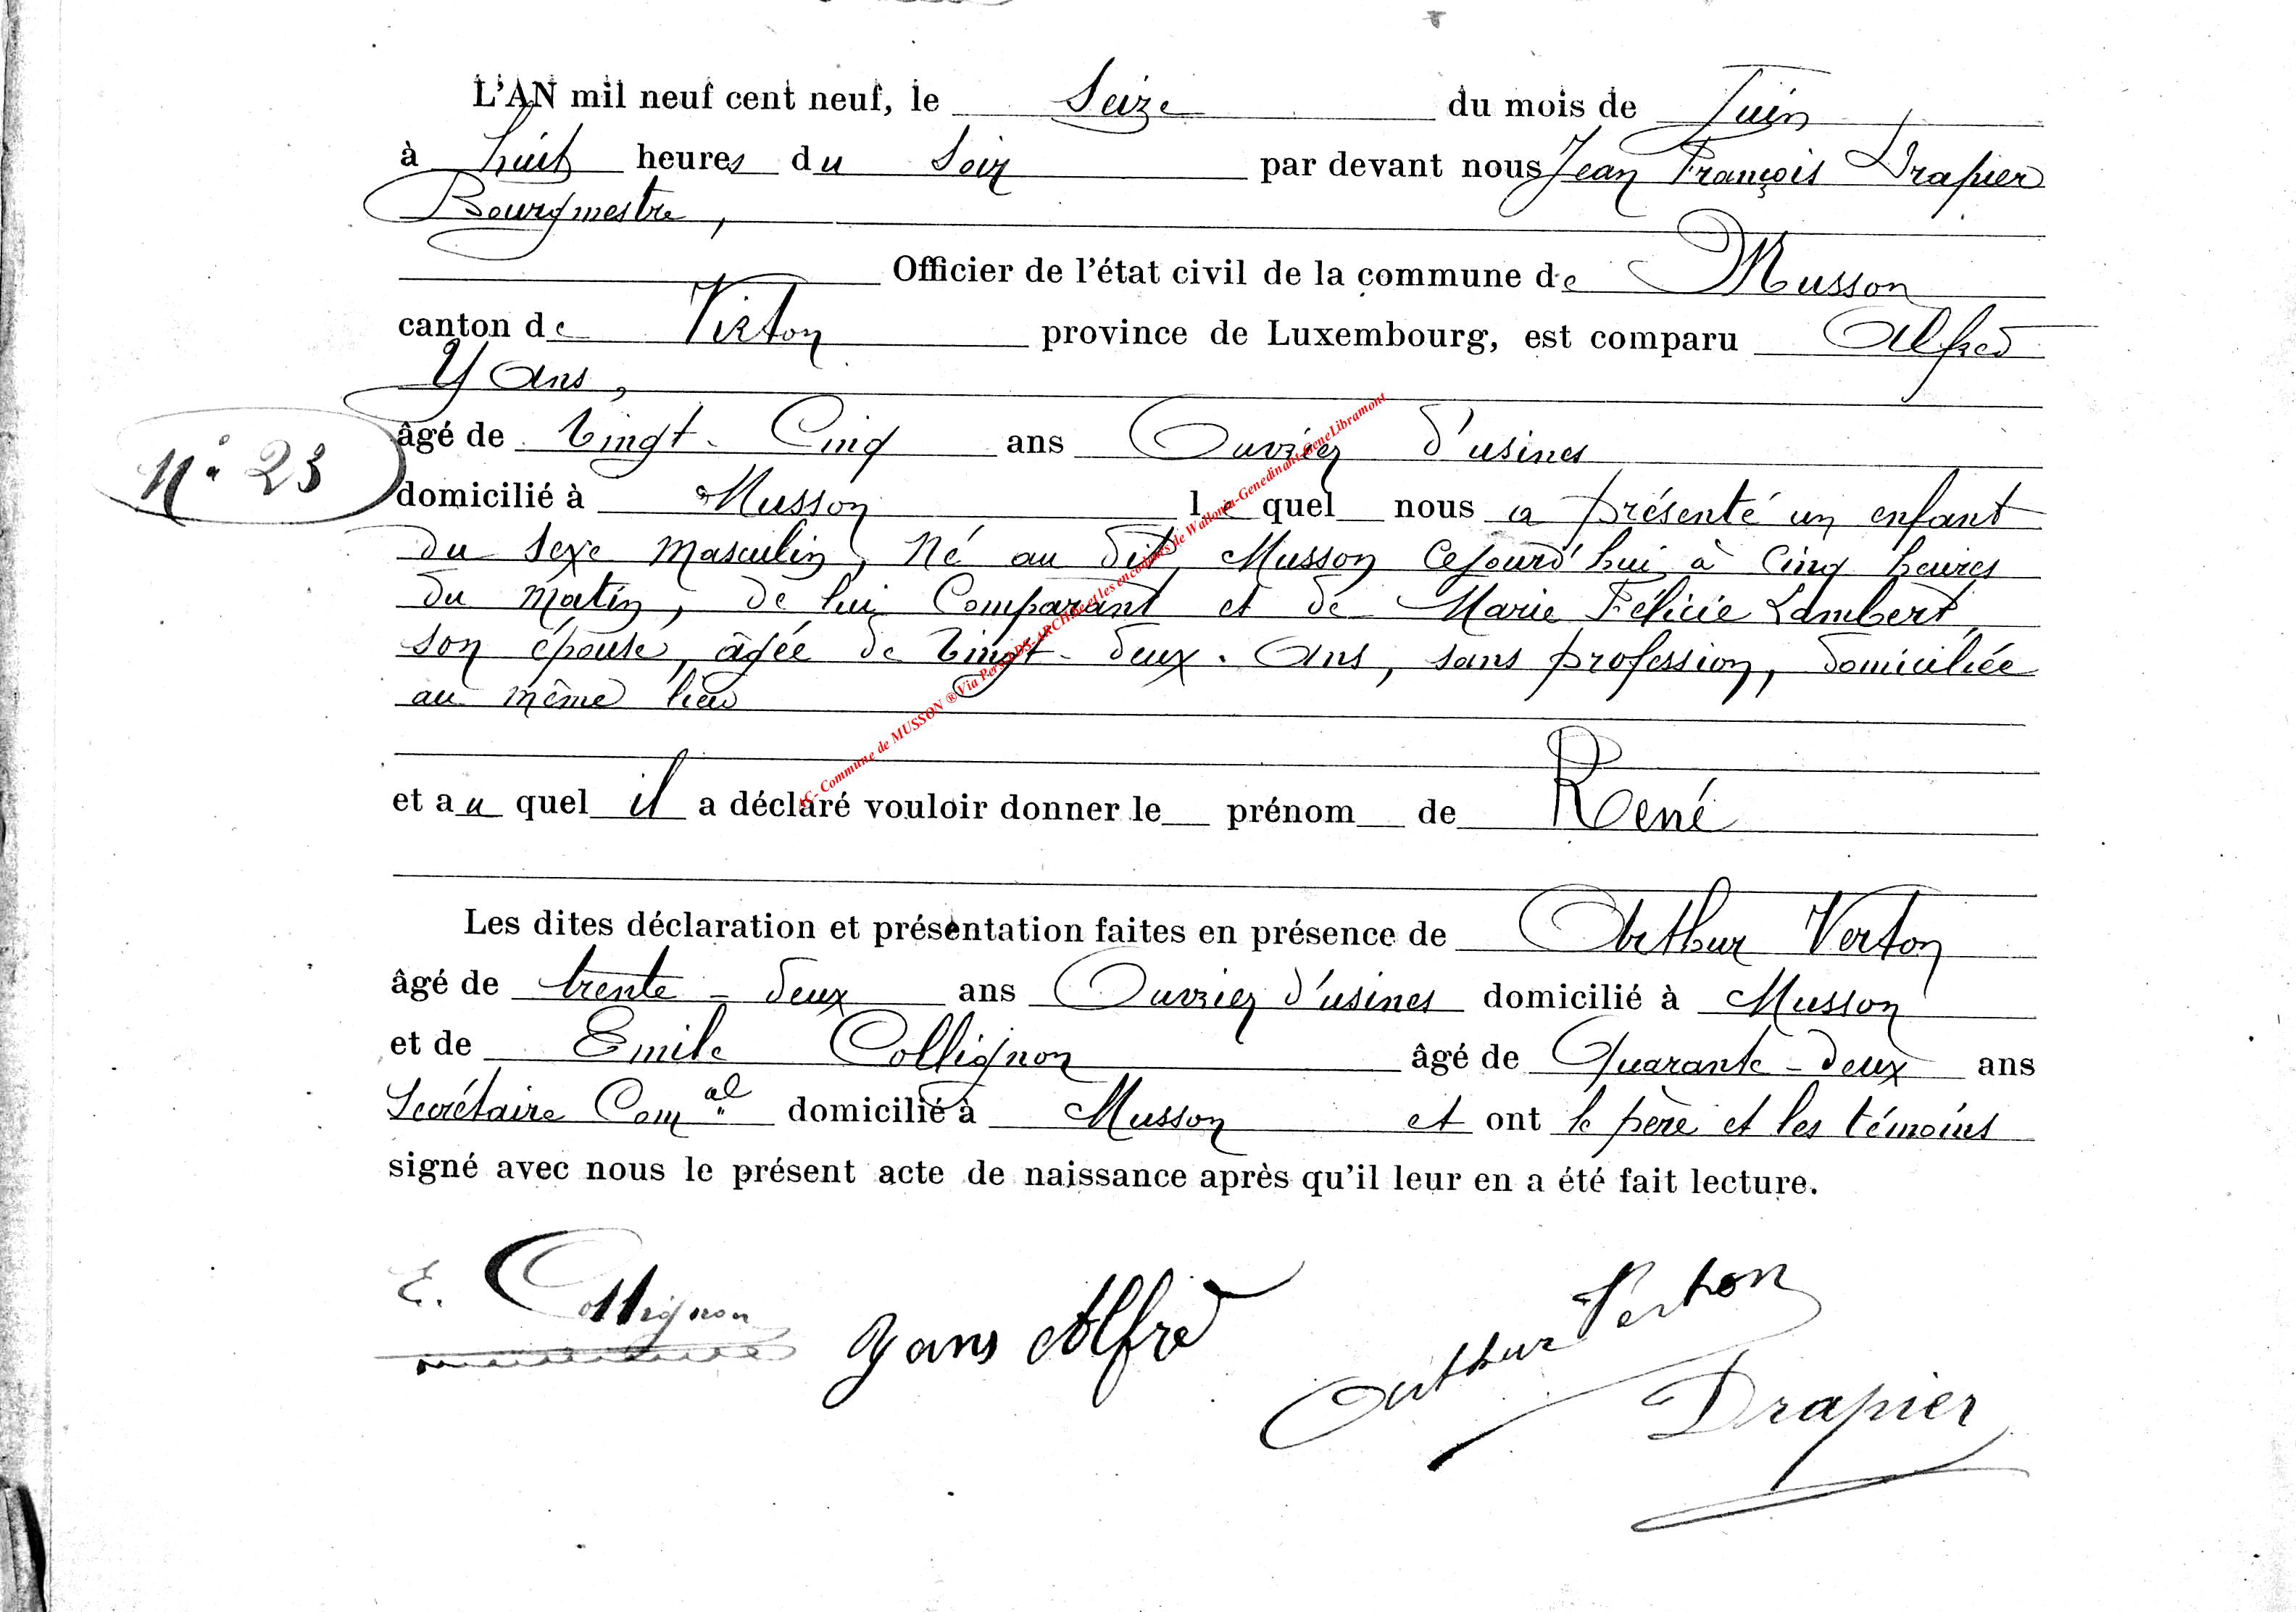 L'AN mil neuf cent neuf, le Seize du mois de Juin
à huit heures du Soir par devant nous Jean François Drapier
Bourgmestre,
Officier de l'état civil de la commune de Musson
canton de Virton province de Luxembourg, est comparu Alfred
Yans,
âgé de Vingt-Cinq ans Ouvrier d'usines
N° 23
domicilié à Musson lequel nous a présenté un enfant
du sexe masculin, né au dit Musson Cejourd'hui à Cinq heures
du matin, de lui Comparant et de Marie Félicie Lambert,
son épouse, âgée de Vingt-deux ans, sans profession, domiciliée
au même lieu
et au quel il a déclaré vouloir donner le prénom de René
Les dites déclaration et présentation faites en présence de Arthur Verton
âgé de trente-deux ans Ouvrier d'usines domicilié à Musson
et de Emile Collignon âgé de Quarante-deux ans
Secrétaire Com.al domicilié à Musson et ont le père et les témoins
signé avec nous le présent acte de naissance après qu'il leur en a été fait lecture.
E. Collignon
Yans Alfred
Arthur Verton
Drapier
AC- Commune de MUSSON ® Via Pers. DS-ARCHIve et les encodeurs de Wallonia-Genedinant-GeneLibramont